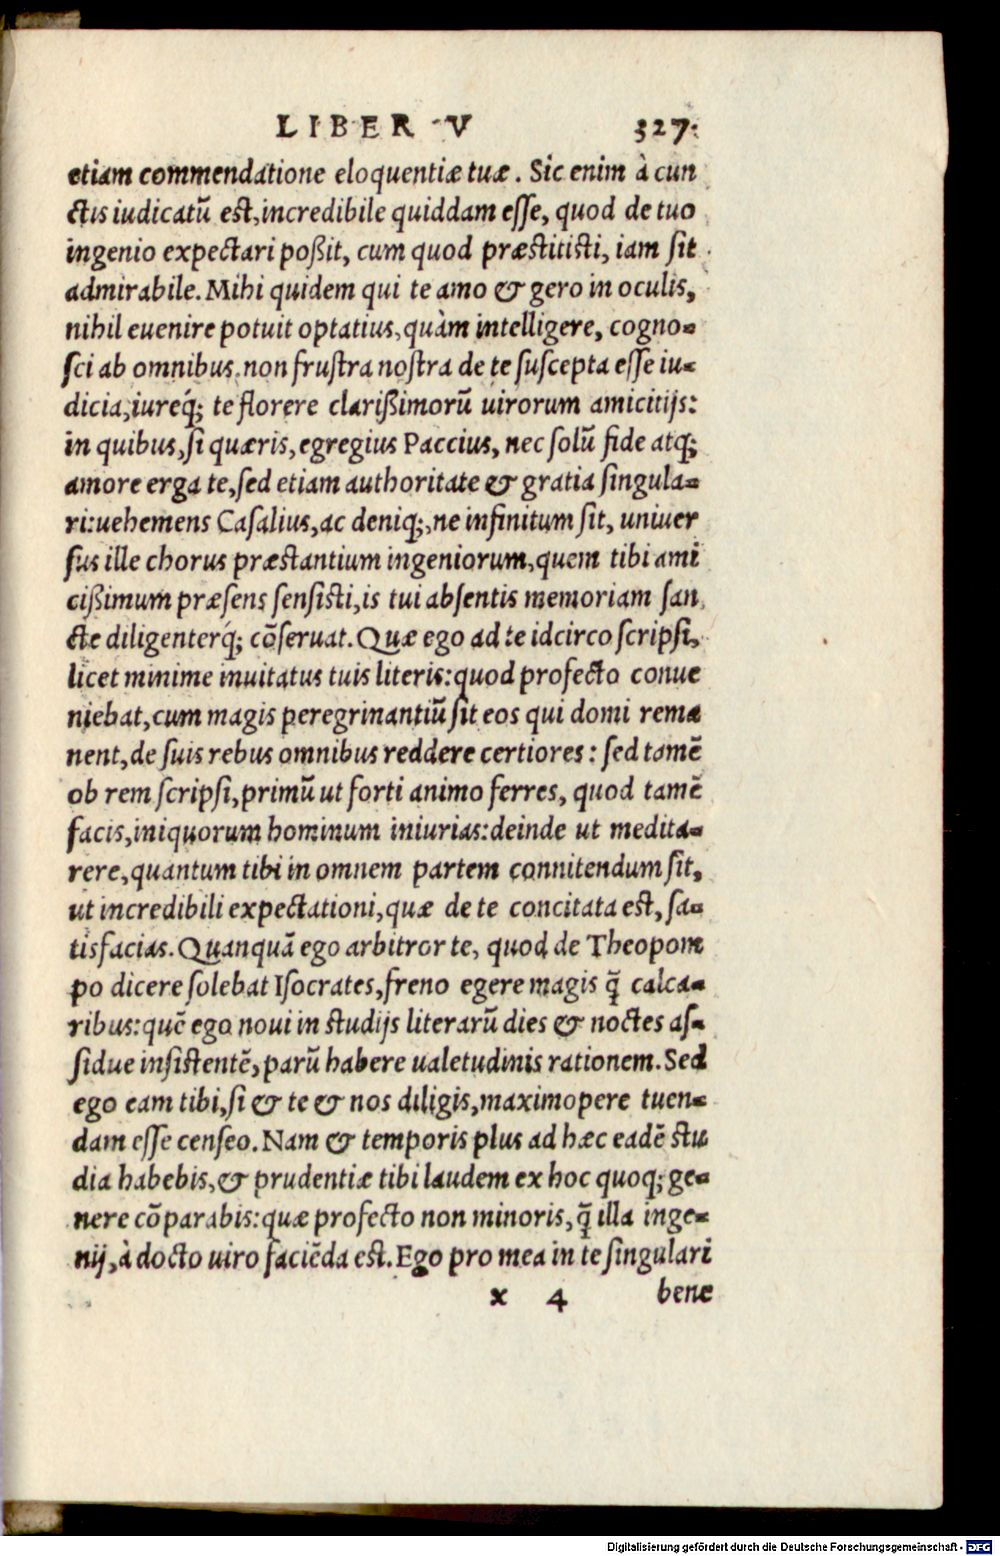 LIBER V 327.
etiam commendatione eloquentiæ tuæ. Sic enim à cun
ctis iudicatũ est, incredibile quiddam esse, quod de tuo
ingenio expectari poßit, cum quod præstitisti, iam sit
admirabile. Mihi quidem qui te amo & gero in oculis,
nihil euenire potuit optatius, quàm intelligere, cogno-
sci ab omnibus, non frustra nostra de te suscepta esse iu-
dicia, iureq́; te florere clarißimorũ uirorum amicitijs:
in quibus, si quæris, egregius Paccius, nec solũ fide atq;
amore erga te, sed etiam authoritate & gratia singula-
ri: uehemens Casalius, ac deniq;, ne infinitum sit, uniuer
sus ille chorus præstantium ingeniorum, quem tibi ami
cißimum præsens sensisti, is tui absentis memoriam san
cte diligenterq́; cõseruat. Quæ ego ad te idcirco scripsi,
licet minime inuitatus tuis literis: quod profecto conue
niebat, cum magis peregrinantiũ sit eos qui domi rema
nent, de suis rebus omnibus reddere certiores: sed tamẽ
ob rem scripsi, primũ ut forti animo ferres, quod tamẽ
facis, iniquorum hominum iniurias: deinde ut medita-
rere, quantum tibi in omnem partem connitendum sit,
ut incredibili expectationi, quæ de te concitata est, sa-
tisfacias. Quanquã ego arbitror te, quod de Theopom
po dicere solebat Isocrates, freno egere magis q̃ calca-
ribus: quẽ ego noui in studijs literarũ dies & noctes as-
sidue insistentẽ, parũ habere ualetudinis rationem. Sed
ego eam tibi, si & te & nos diligis, maximopere tuen-
dam esse censeo. Nam & temporis plus ad hæc eadẽ stu
dia habebis, & prudentiæ tibi laudem ex hoc quoq; ge-
nere cõparabis: quæ profecto non minoris, q̃ illa inge-
nij, à docto uiro faciẽda est. Ego pro mea in te singulari
x 4 bene
Digitalisierung gefördert durch die Deutsche Forschungsgemeinschaft - DFG